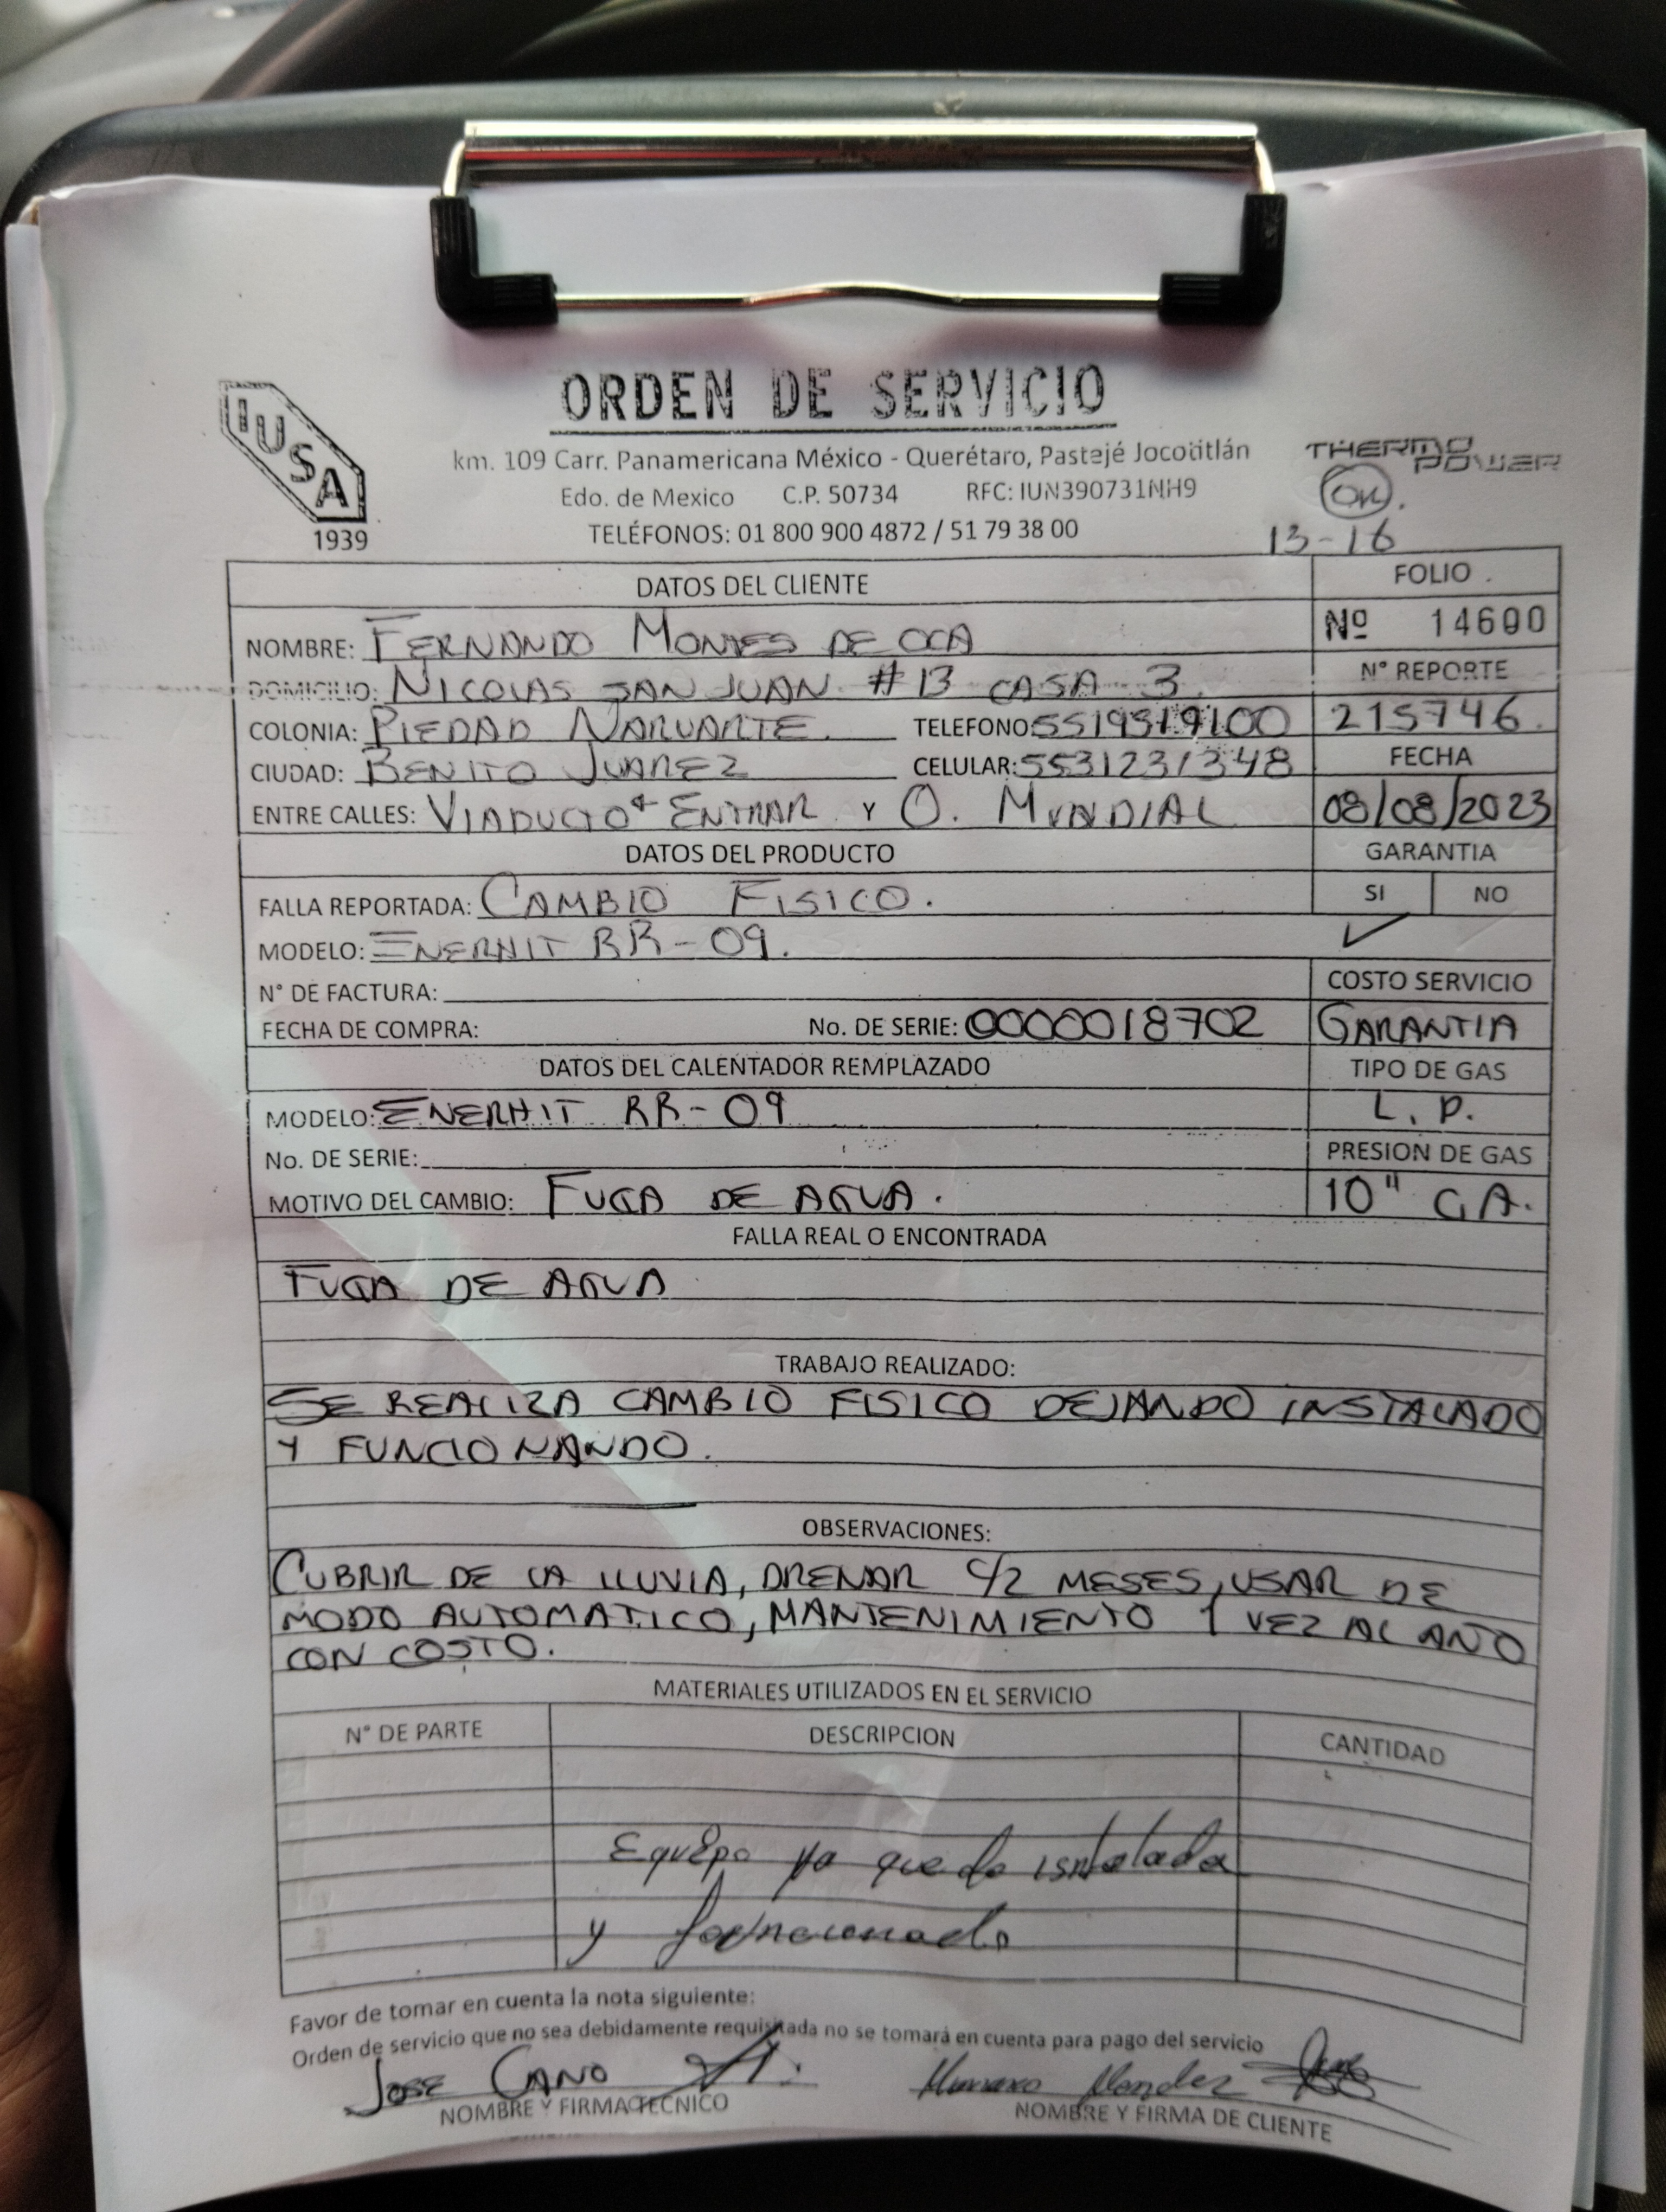 IUSA
1939
ORDEN DE SERVICIO
km. 109 Carr. Panamericana México - Querétaro, Pastejé Jocotitlán
Edo. de Mexico C.P. 50734 RFC: IUN390731NH9
TELÉFONOS: 01 800 900 4872 / 51 79 38 00
THERMO
POWER
OK.
13-16
DATOS DEL CLIENTE
FOLIO
NOMBRE: FERNANDO MONTES DE OCA
Nº 14600
DOMICILIO: NICOLAS SAN JUAN #13 CASA 3
N° REPORTE
COLONIA: PIEDAD NARVARTE. TELEFONO:
215746.
CIUDAD: BENITO JUAREZ CELULAR: 5531231348
FECHA
ENTRE CALLES: VIADUCTO ENTRAR Y O. MUNDIAL
08/08/2023
DATOS DEL PRODUCTO
GARANTIA
FALLA REPORTADA: CAMBIO FISICO.
SI NO
MODELO: ENERHIT RR-09.
✓
N° DE FACTURA:
COSTO SERVICIO
FECHA DE COMPRA: No. DE SERIE: 0000018702
GARANTIA
DATOS DEL CALENTADOR REMPLAZADO
TIPO DE GAS
MODELO: ENERHIT RR-09
L.P.
No. DE SERIE:
PRESION DE GAS
MOTIVO DEL CAMBIO: FUGA DE AGUA.
10" C.A.
FALLA REAL O ENCONTRADA
FUGA DE AGUA
TRABAJO REALIZADO:
SE REALIZA CAMBIO FISICO DEJANDO INSTALADO
Y FUNCIONANDO.
OBSERVACIONES:
CUBRIR DE LA LLUVIA, DRENAR C/2 MESES, USAR DE
MODO AUTOMATICO, MANTENIMIENTO 1 VEZ AL AÑO
CON COSTO.
MATERIALES UTILIZADOS EN EL SERVICIO
N° DE PARTE DESCRIPCION CANTIDAD
Equipo ya queda isntalada
y
Favor de tomar en cuenta la nota siguiente:
Orden de servicio que no sea debidamente requisitada no se tomará en cuenta para pago del servicio
JOSE CANO
Mendez
NOMBRE Y FIRMA TECNICO
NOMBRE Y FIRMA DE CLIENTE